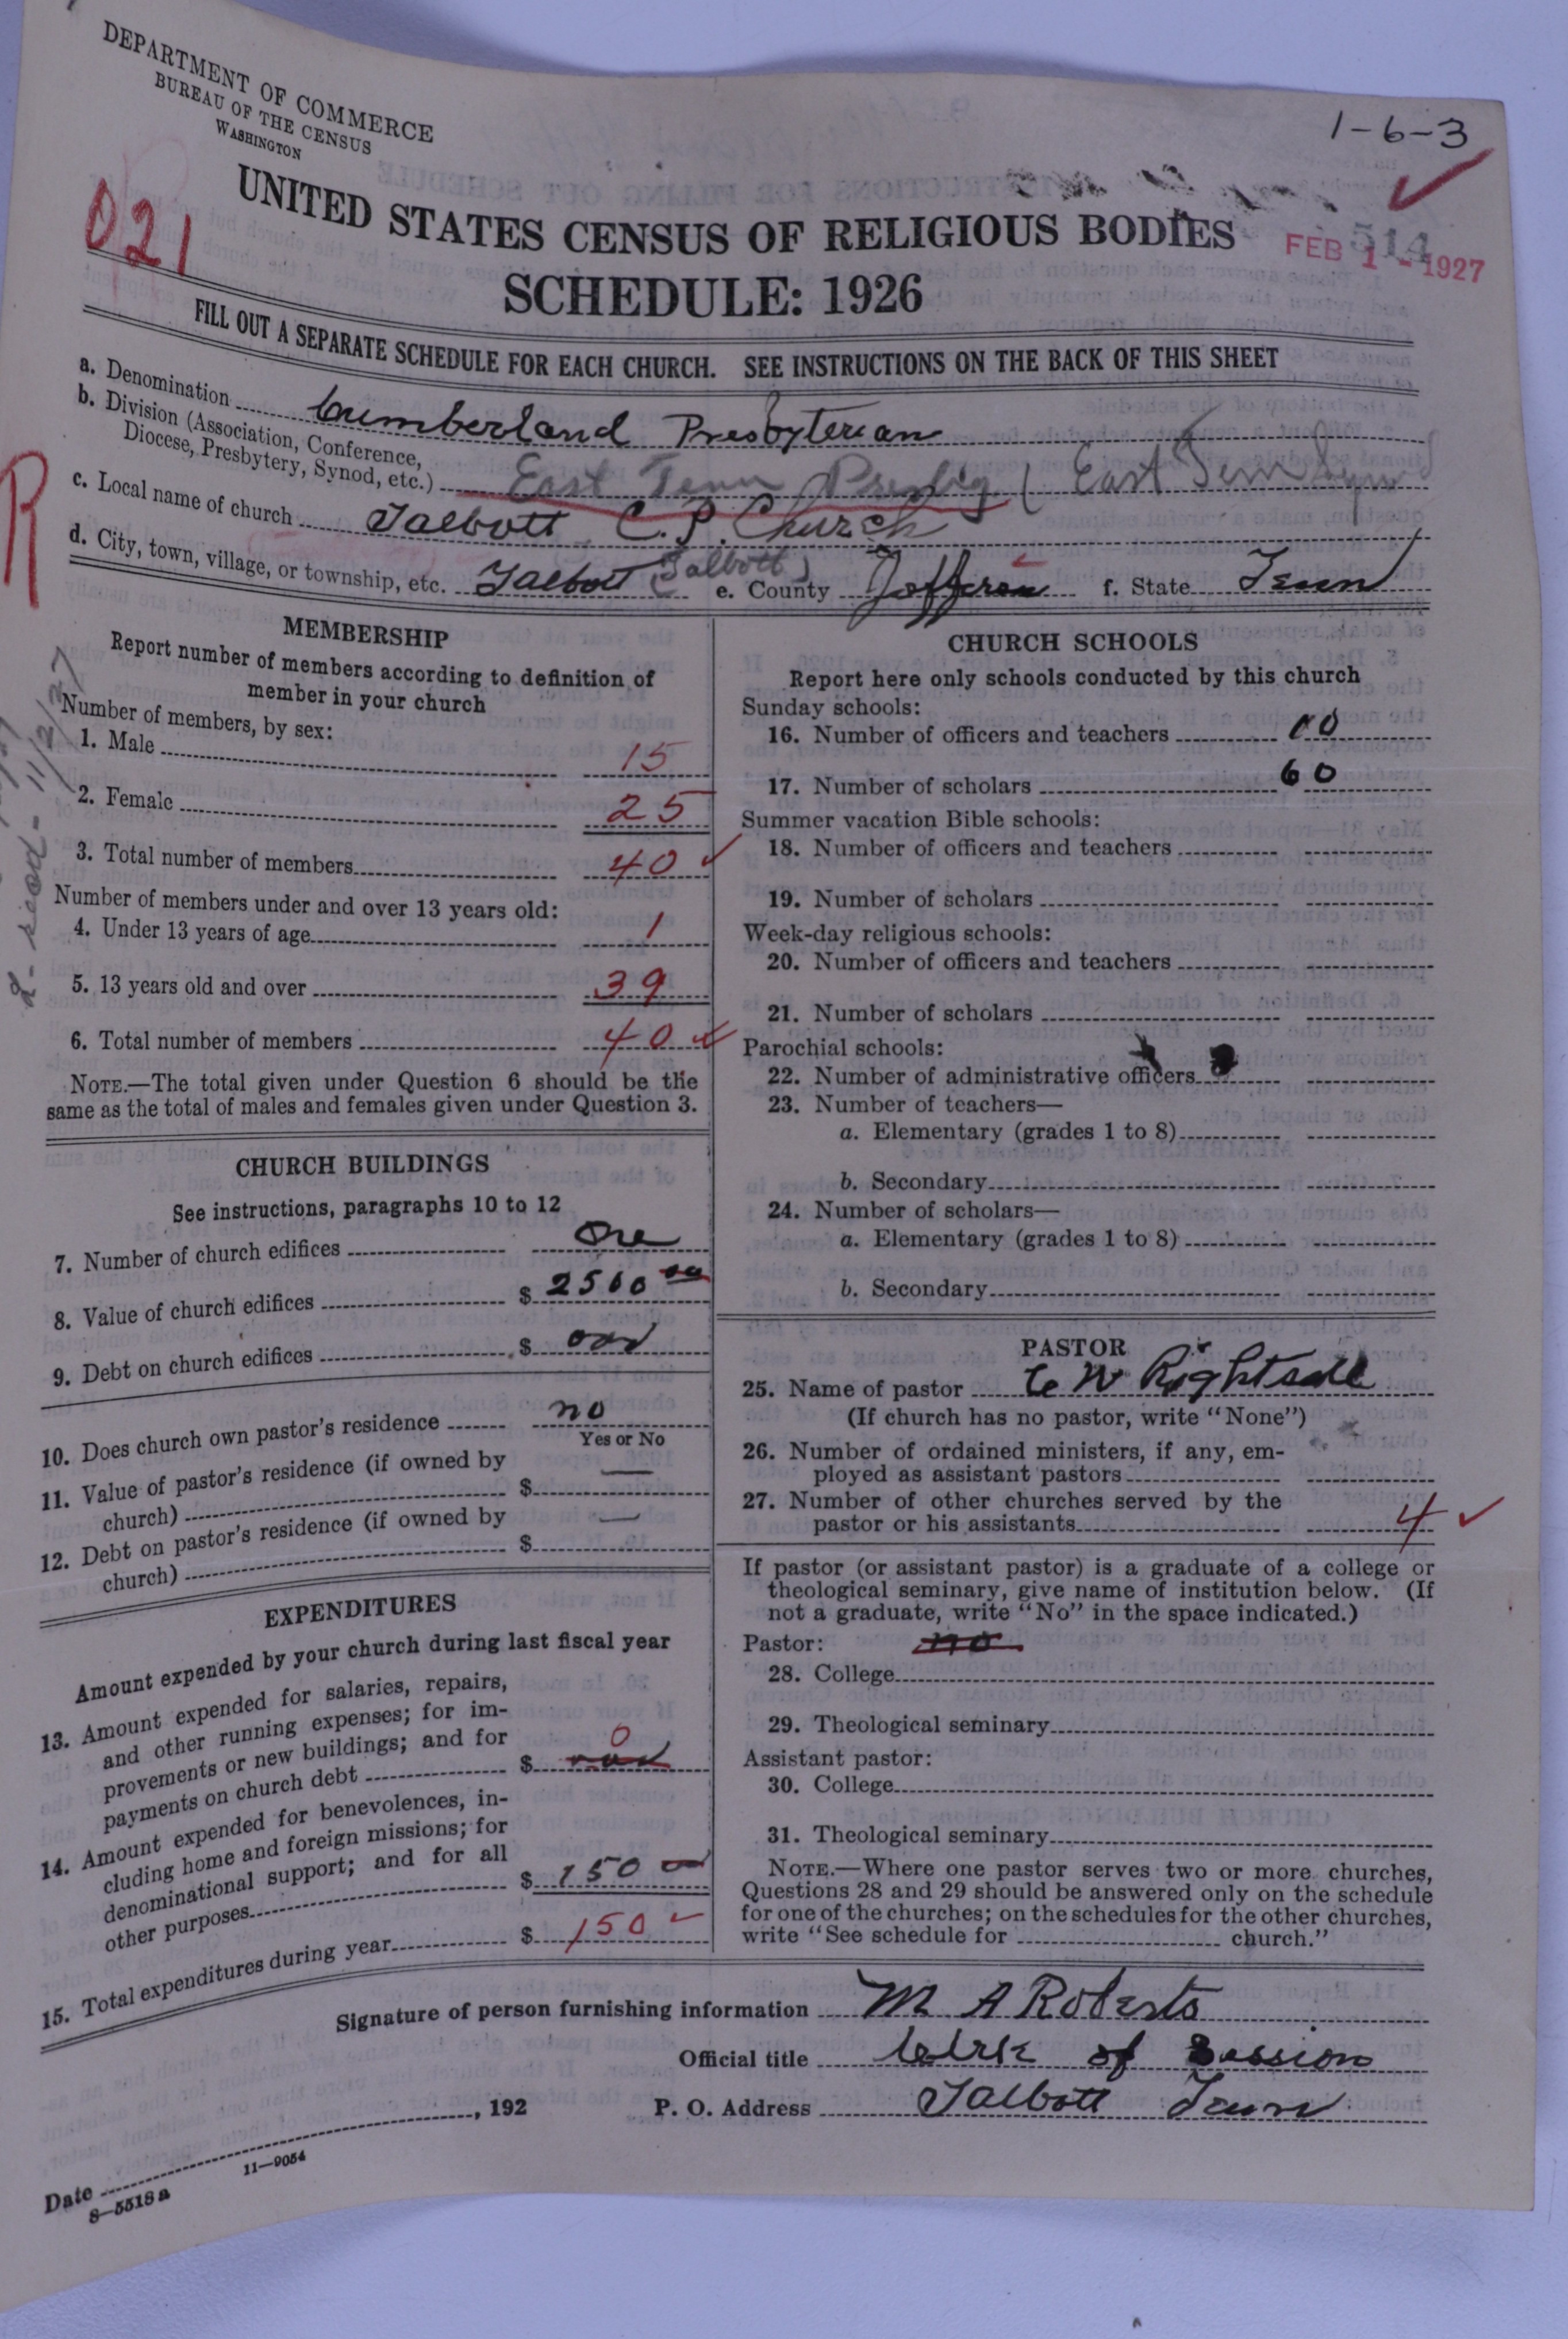 DEPARTMENT OF COMMERCE
BUREAU OF THE CENSUS
WASHINGTON
1-6-3
021
UNITED STATES CENSUS OF RELIGIOUS BODIES
514
FEB 1 - 1927
SCHEDULE: 1926
FILL OUT A SEPARATE SCHEDULE FOR EACH CHURCH. SEE INSTRUCTIONS ON THE BACK OF THIS SHEET
a. Denomination Cumberland Presbyterian
b. Division (Association, Conference,
Diocese, Presbytery, Synod, etc.) East Tenn Presby ( East Tenn
R
c. Local name of church Talbott C. P. Church
d. City, town, village, or township, etc. Talbott (Talbott) e. County Jefferson f. State Tenn
MEMBERSHIP
Report number of members according to definition of
member in your church
Number of members, by sex:
1. Male 15
2. Female 25
3. Total number of members 40
Number of members under and over 13 years old:
4. Under 13 years of age 1
5. 13 years old and over 39
6. Total number of members 40
NOTE.—The total given under Question 6 should be the
same as the total of males and females given under Question 3.
11/2/27
CHURCH BUILDINGS
See instructions, paragraphs 10 to 12
7. Number of church edifices One
8. Value of church edifices $ 2500 00
9. Debt on church edifices $
10. Does church own pastor's residence no
Yes or No
11. Value of pastor's residence (if owned by
church) $ —
12. Debt on pastor's residence (if owned by
church) $ —
EXPENDITURES
Amount expended by your church during last fiscal year
13. Amount expended for salaries, repairs,
and other running expenses; for im-
provements or new buildings; and for
payments on church debt $ 0
14. Amount expended for benevolences, in-
cluding home and foreign missions; for
denominational support; and for all
other purposes $ 150 00
15. Total expenditures during year $ 150
CHURCH SCHOOLS
Report here only schools conducted by this church
Sunday schools:
16. Number of officers and teachers
17. Number of scholars 60
Summer vacation Bible schools:
18. Number of officers and teachers
19. Number of scholars
Week-day religious schools:
20. Number of officers and teachers
21. Number of scholars
Parochial schools:
22. Number of administrative officers
23. Number of teachers—
a. Elementary (grades 1 to 8)
b. Secondary
24. Number of scholars—
a. Elementary (grades 1 to 8)
b. Secondary
PASTOR
25. Name of pastor C W Rightsell
(If church has no pastor, write "None")
26. Number of ordained ministers, if any, em-
ployed as assistant pastors
27. Number of other churches served by the
pastor or his assistants 4
If pastor (or assistant pastor) is a graduate of a college or
theological seminary, give name of institution below. (If
not a graduate, write "No" in the space indicated.)
Pastor: no
28. College
29. Theological seminary
Assistant pastor:
30. College
31. Theological seminary
NOTE.—Where one pastor serves two or more churches,
Questions 28 and 29 should be answered only on the schedule
for one of the churches; on the schedules for the other churches,
write "See schedule for church."
Signature of person furnishing information M A Roberts
Official title Clerk of Session
P. O. Address Talbott Tenn
Date , 192
8—5518 a
11—9054